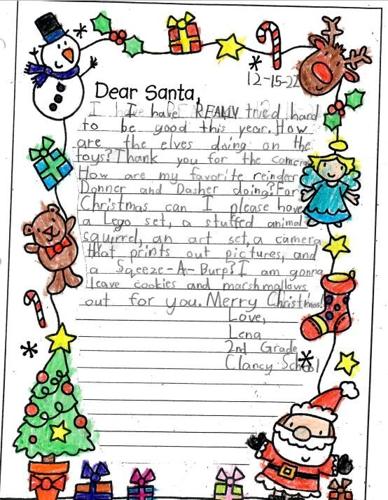 12-15-22
Dear Santa,
I have REALLY tried hard
to be good this year. How
are the elves doing on the
toys? Thank you for the camera
How are my favorite reindeer
Donner and Dasher doing? For
Christmas can I please have
a Lego set, a stuffed animal
squirrel, an art set, a camera
that prints out pictures, and
a Squeeze-A-Burp? I am gonna
leave cookies and marshmallows
out for you. Merry Christmas!
Love,
Lena
2nd Grade
Clancy School